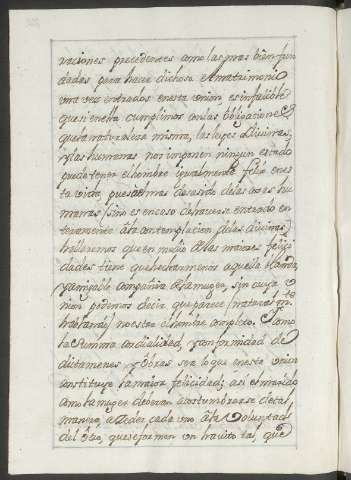 vaciones precedentes como las mas bien fun
dadas para hacer dichoso el matrimonio
una vez entrados en esta union, es infalible
que si en ella cumplimos con las obligaciones
que la naturaleza misma, las leyes divinas,
y las humanas nos imponen ningun estado
puede tener el hombre igualmente feliz en es
ta vida, pues el mas de las cosas hu
manas (sino es en caso de haverse entrado en
teramente a la contemplacion de las divinas)
hallaremos que en medio de las maiores felici
dades tiene que hechar menos aquella
y amigable compañia de la muger, sin cuya u
nion podemos decir que parece (naturalmte
hablando) no estar el hombre completo. Como
la summa cordialidad, y conformidad de
dictamenes y obras sea lo que en esta union
constituye la maior felicidad; asi el marido
como la muger deberan acostumbrarse de tal
manera, a ceder cada uno a la voluntad
del otro, que se formen un havito tal, que